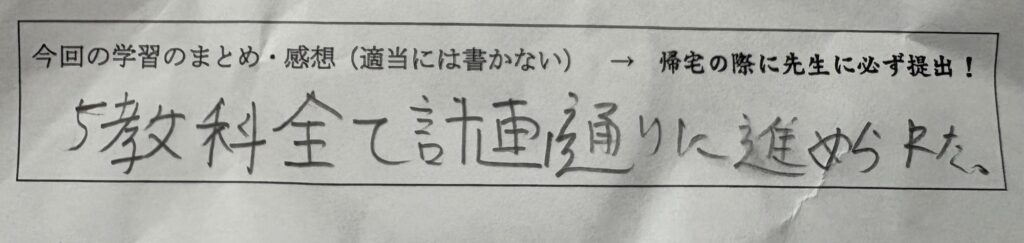 今回の学習のまとめ・感想（適当には書かない） → 帰宅の際に先生に必ず提出！
5教科全て計画通りに進められた。